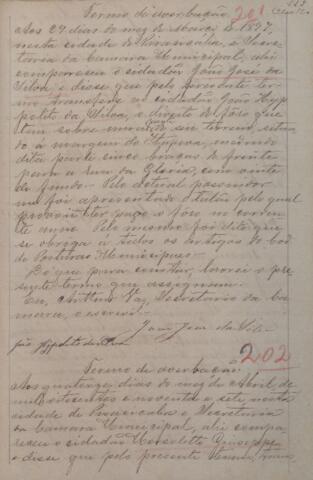 Termo de averbação 201
Aos 29 dias do mez de Março de 1897,
nesta cidade de Piracicaba, e Secre-
taria da Camara Municipal, ahi
compareceu o cidadão João José da
Silva, e disse que pelo presente ter-
mo transfere ao cidadão João Hyp-
polito da Silva, o direito de fôro que
tem sobre em seu terreno, situa-
do á margem do Itapeva, medindo
dita parte cinco braças de frente
para a rua da Gloria, com vinte
de fundo. Pelo actual possuidor
me foi apresentado o talão pelo qual
provou ter pago o fôro no corren-
te anno. Pelo mesmo foi dito que
se obriga a todos os artigos do Cod.
de Posturas Municipaes.
E o que para constar, lavrei o pre-
sente termo que assignam.
Eu, Arthur Vaz, Secretario da Ca-
mara, o escrevi.
João José da Silva
João Hyppolito da Silva
202
Termo de averbação
Aos quatorze dias do mez de Abril, de
mil oitocentos e noventa e sete nesta
cidade de Piracicaba e Secretaria
da Camara Municipal, ahi compa-
receu o cidadão Giuseppe
e disse que pelo presente termo, trans